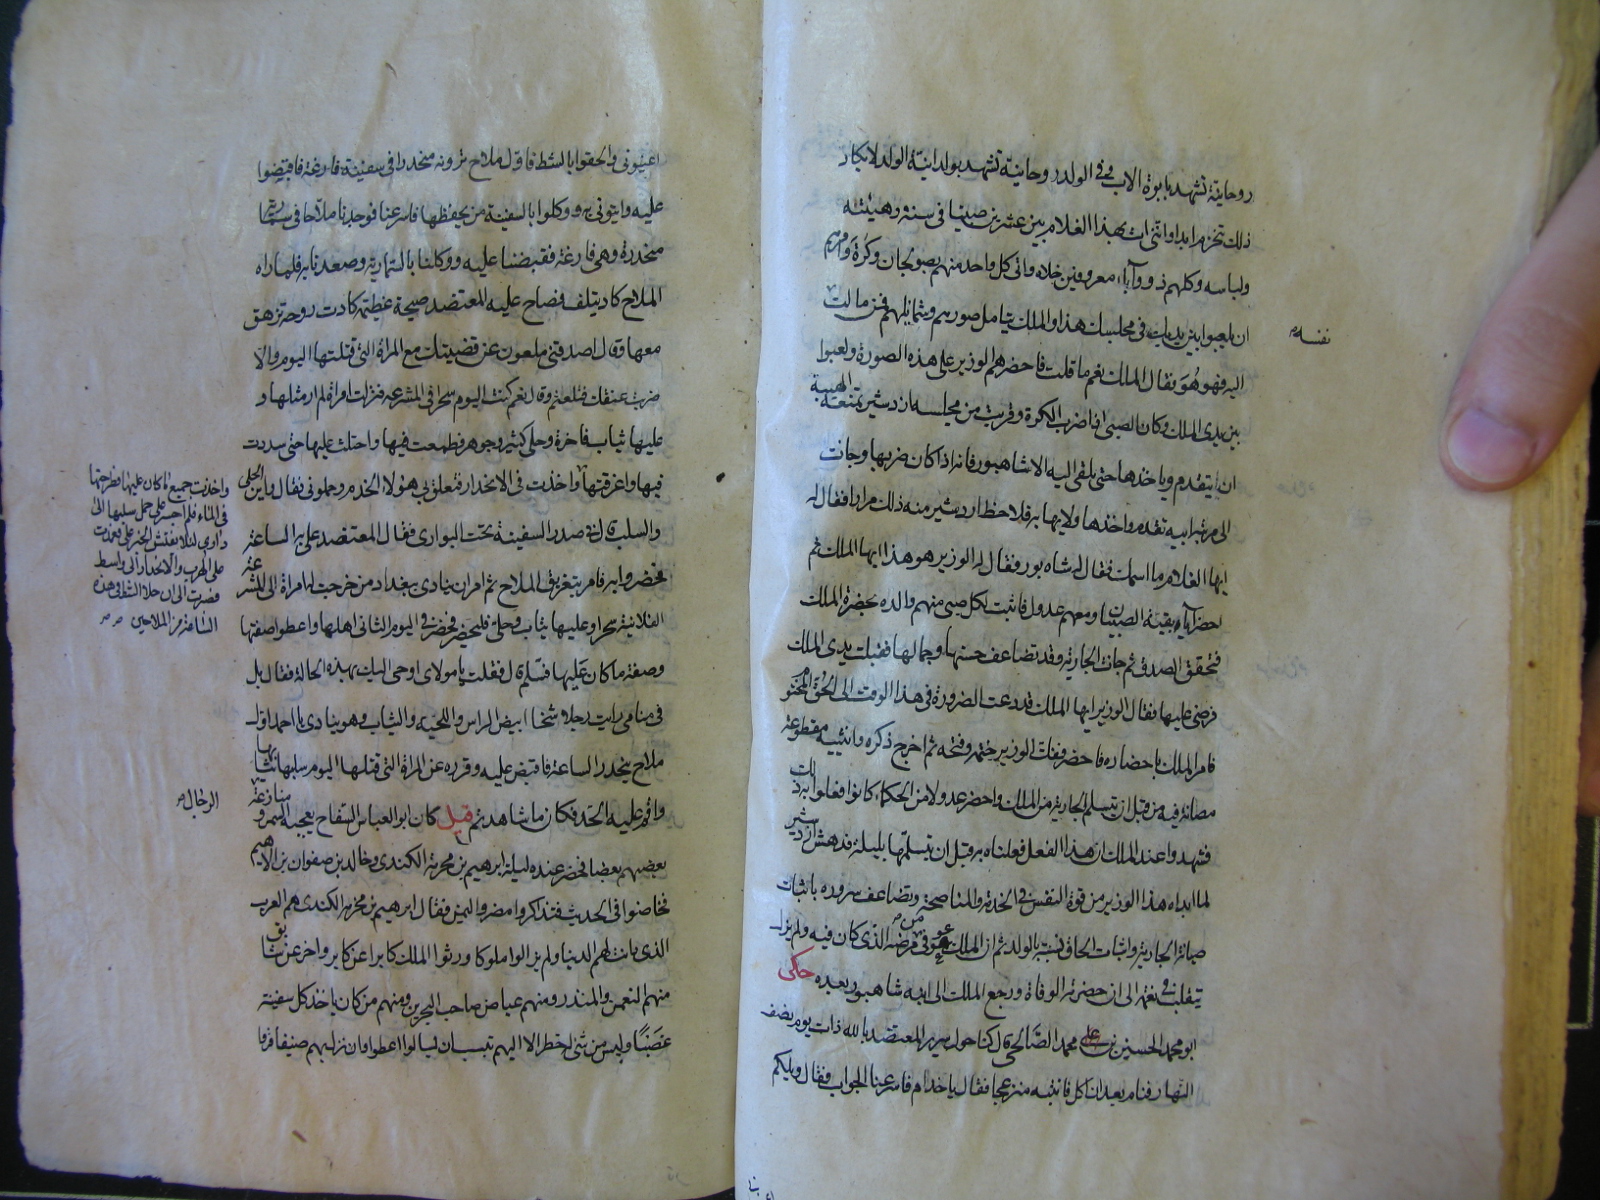 روحانية تشهد بابوة الاب وفي الولد روحانية تشهد بولدانية الولد لا يكاد
ذلك ينخرم ابدا وانني ات بهذا الغلام بين عشرين صبيا في سنه وهيئته
ولباسه وكلهم ذووا آباء معروفين خلاه واتي كل واحد منهم بصولجان وكرة وامرهم
ان يلعبوا بين يديك في مجلسك هذا والملك يتامل صورهم وشمايلهم فمن مالت
نفسه
اليه فهو هو فقال الملك نعم ما قلت فاحضرهم الوزير على هذه الصورة ولعبوا
بين يدى الملك وكان الصبي اذا ضرب الكرة وقربت من مجلسه اردشير تمنعه الهيبة
ان يتقدم وياخذها حتى يلقى اليه الا شاهبور فانه اذا كان ضربها وجات
الى مرتبة ابيه تقدم واخذها ولا يهابه فلاحظ اردشير منه ذلك مرارا فقال له
ايها الغلام ما اسمك فقال له شاه بور فقال له الوزير هو هذا ايها الملك ثم
احضر آباء بقية الصبيان ومعهم عدول فاثبت لكل صبي منهم والده بحضرة الملك
فتحقق الصدق ثم جات الجارية وقد تضاعف حسنها وجمالها فقبلت يدى الملك
فرضى عليها فقال الوزير ايها الملك قد دعت الضرورة في هذا الوقت الى الحق المختوم
فامر الملك باحضاره فاحضر ففك الوزير ختمه وفتحه ثم اخرج ذكره وانثييه مقطوعة
مصانة فيه من قبل ان يتسلم الجارية من الملك واحضر عدولا من الحكماء كانوا فعلوا به ذلك
فشهدوا عند الملك ان هذا الفعل فعلناه به قبل ان تسلمها بليلة فدهش اردشير
لما ابداه هذا الوزير من قوة النفس في الخدمة والمناصحة وتضاعف سروره باثبات
صيانة الجارية واثبات الحاق نسبة بالولد ثم ان الملك عوفي من مرضه الذى كان فيه ولم يزل
يتقلب في نعمه الى ان حضرته الوفاة ورجع الملك الى ابنه شاهبور بعده حكى
ابو محمد الحسين بن على محمد الصالحى قال كنا حول سرير المعتضد بالله ذات يوم نصف
النهار فنام بعد ان اكل فانتبه منزعجا فقال يا خدام فاسرعنا الجواب فقال ويلكم
اعينونى والحقوا بالشط فاول ملاح ترونه منحدرا في سفينة فارغة فاقبضوا
عليه وايتونى به ووكلوا بالسفينة من يحفظها فاسرعنا فوجدنا ملاحا في سمارية
منحدرة وهى فارغة فقبضنا عليه ووكلنا بالسمارية وصعدنا به فلما راه
الملاح كاد يتلف فصاح عليه المعتضد صيحة عظيمة كادت روحه تزهق
معها وقال اصدقنى ملعون عن قضيتك مع المراة التى قتلتها اليوم والا
ضربت عنقك فتلعثم وقال نعم كنت اليوم سحرا في المشرعه فنزلت امراة لم ار مثلها و
عليها ثياب فاخرة وحلى كثير وجوهر فطمعت فيها واحتلت عليها حتى سددت
فيها واغرقتها واخذت في الانحدار فتعلق بى هولا الخدم وحملونى فقال واين الحلى
واخذت جميع ما كان عليها وطرحتها
في الماء فلم اجسر على حمل سلبها الى
دارى لئلا يفتش الخبر على فعزمت
على الهرب والانحدار الى واسط
فصبرت الى ان خلا الشط في هذه
الساعة من الملاحين صح
والسلب قال في صدر السفينة تحت البوارى فقال المعتضد على به الساعة
فحضروا به فامر بتغريق الملاح ثم امر ان ينادى ببغداد من خرجت له امراة الى المشرعة
الفلانية سحرا وعليها ثياب وحلى فليحضر فحضر في اليوم الثانى اهلها واعطوا صفتها
وصفة ما كان عليها فسلمه قال فقلت يا مولاى اوحى اليك بهذه الحالة فقال بل
في منامى رايت رجلا شيخا ابيض الراس واللحيه والثياب وهو ينادى يا احمد اول
ملاح ينحدر الساعة فاقبض عليه وقرره عن المراة التى قتلها اليوم سلبها ثيابها
واقم عليه الحد فكان ما شاهدتم قيل كان ابو العباس السفاح يعجبه السمر ومنازعة
الرجال
بعضهم بعضا فحضر عنده ليلة ابرهيم بن مخرمة الكندى وخالد بن صفوان بن الاهيم
فخاضوا في الحديث فتذاكروا مضر واليمن فقال ابرهيم بن مخرمه الكندى هم العرب
الذى دانت لهم الدنيا ولم يزالوا ملوكا ورثوا الملك كابرا عن كابر واخر عن سابق
منهم النعمن والمنذر ومنهم عياض صاحب البحرين ومنهم من كان ياخذ كل سفينة
غصبًا وليس من شئ له خطر الا اليهم ينسب ان سالوا اعطوا وان نزل بهم ضيفا قروا